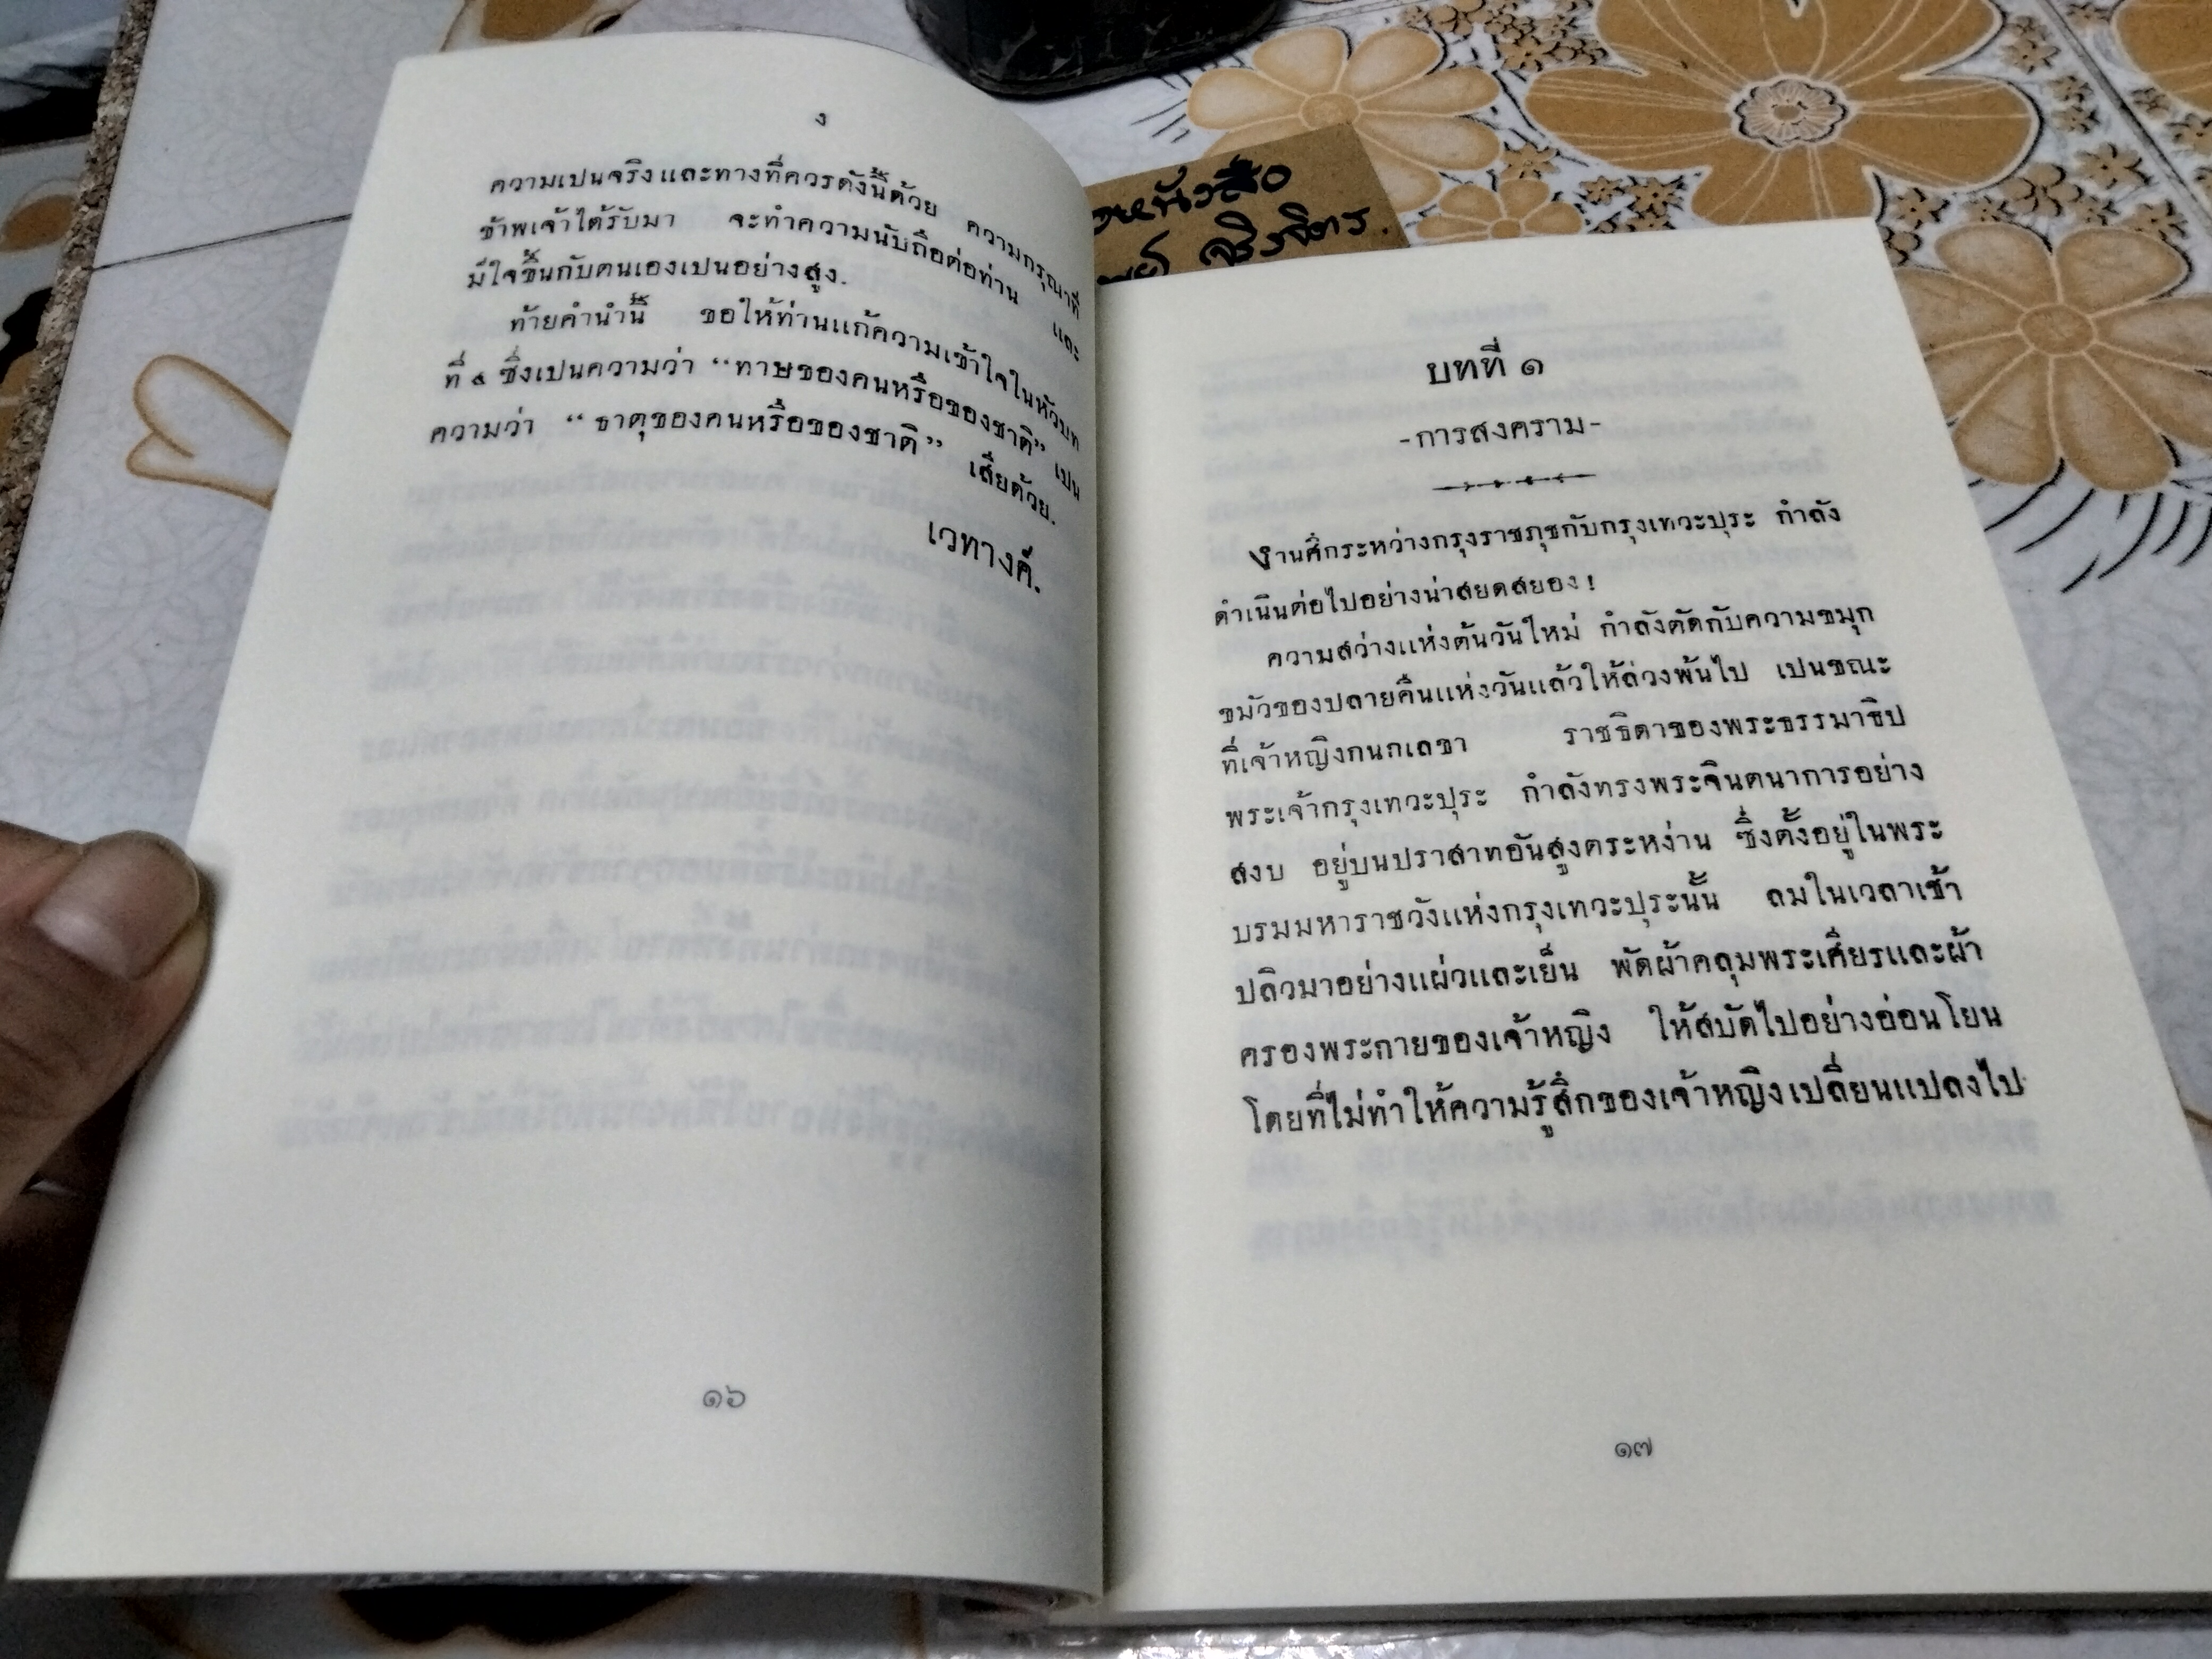 ง
ความเปนจริงและทางที่ควรดังนี้ด้วย ความกรุณาที่
ข้าพเจ้าได้รับมา จะทำความนับถือต่อท่าน และ
มีใจชื้นกับตนเองเปนอย่างสูง.
ท้ายคำนำนี้ ขอให้ท่านแก้ความเข้าใจในหัวบท
ที่ ๕ ซึ่งเปนความว่า “ทาษของคนหรือของชาติ” เปน
ความว่า “ธาตุของคนหรือของชาติ” เสียด้วย.
เวทางค์.
๑๖
หนังสือ
จริงจิตร.
บทที่ ๑
-การสงคราม-
งานศึกระหว่างกรุงราชภุชกับกรุงเทวะปุระ กำลัง
ดำเนินต่อไปอย่างน่าสยดสยอง!
ความสว่างแห่งต้นวันใหม่ กำลังตัดกับความขมุก
ขมัวของปลายคืนแห่งวันแล้วให้ล่วงพ้นไป เปนขณะ
ที่เจ้าหญิงกนกเลขา ราชธิดาของพระธรรมาธิป
พระเจ้ากรุงเทวะปุระ กำลังทรงพระจินตนาการอย่าง
สงบ อยู่บนปราสาทอันสูงตระหง่าน ซึ่งตั้งอยู่ในพระ
บรมมหาราชวังแห่งกรุงเทวะปุระนั้น ลมในเวลาเช้า
ปลิวมาอย่างแผ่วและเย็น พัดผ้าคลุมพระเศียรและผ้า
ครองพระกายของเจ้าหญิง ให้สบัดไปอย่างอ่อนโยน
โดยที่ไม่ทำให้ความรู้สึกของเจ้าหญิงเปลี่ยนแปลงไป
๑๗